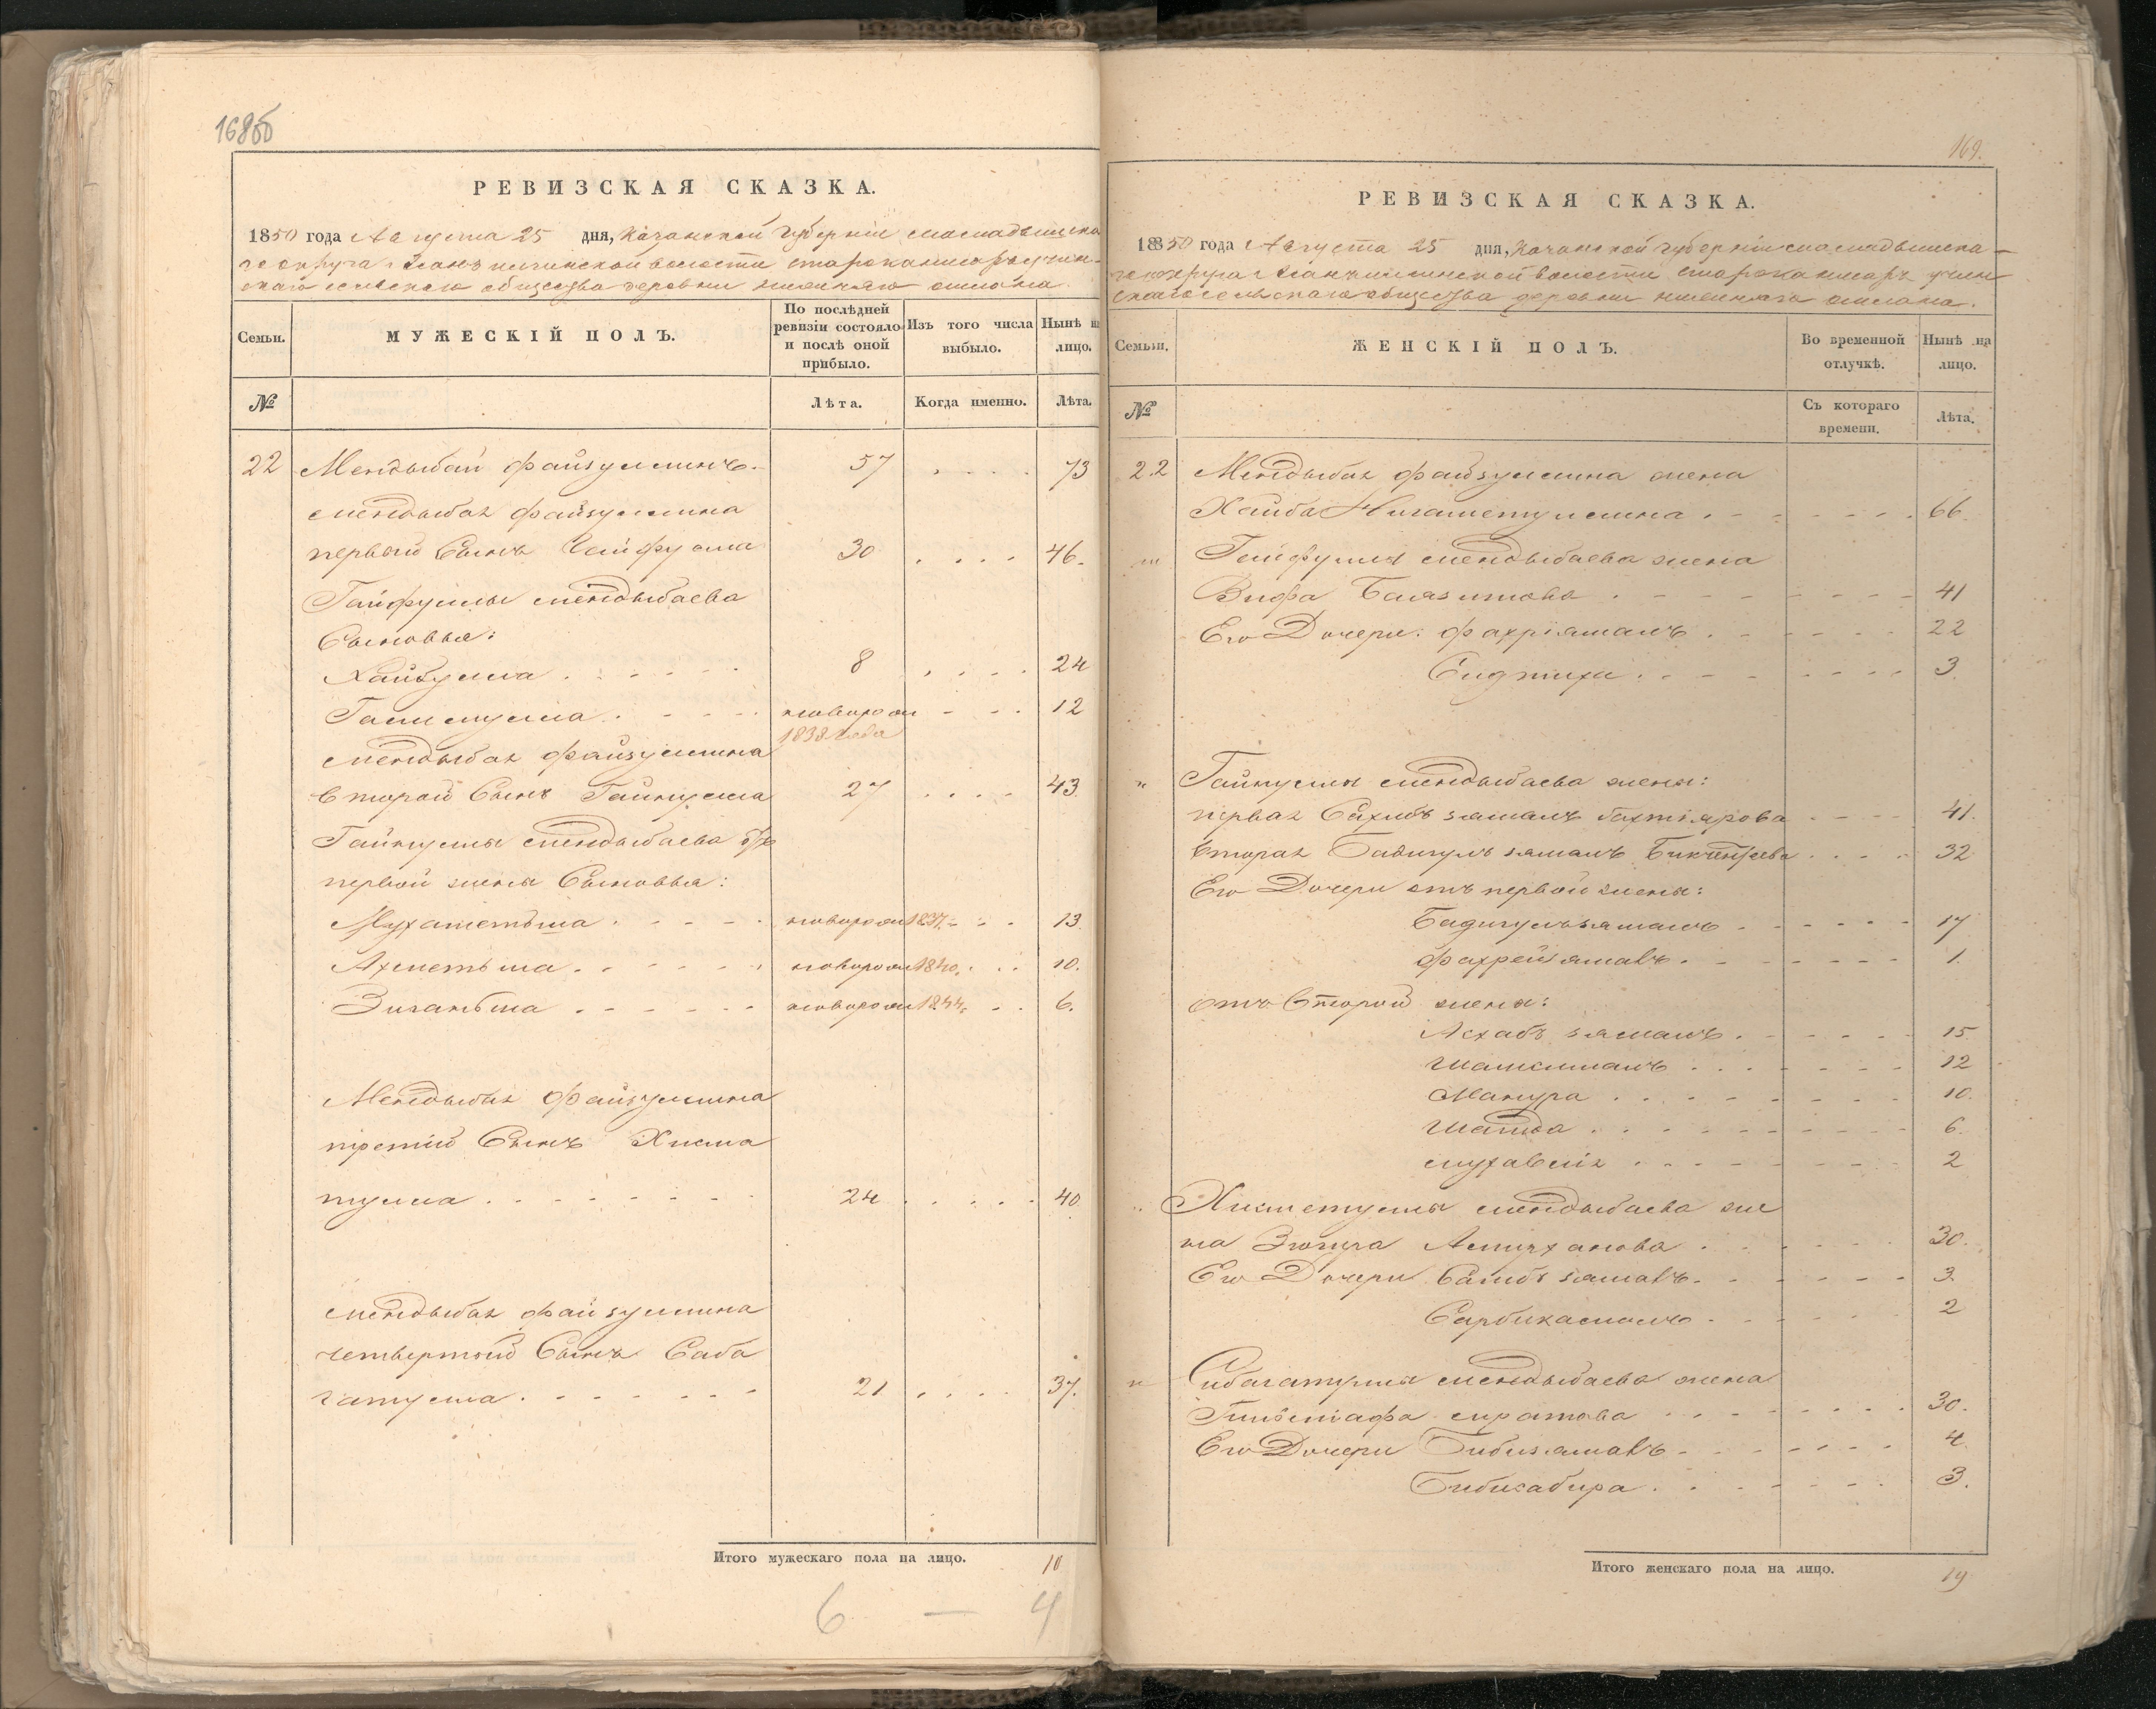 168об
РЕВИЗСКАЯ СКАЗКА.
1850 года Августа 25 дня, Казанской Губернiи мамадышска
го округа
скаго сельскаго общества деревни нижняго ошмана
Семьи.
МУЖЕСКIЙ ПОЛЪ.
По послѣдней ревизiи состояло и послѣ оной прибыло.
Изъ того числа выбыло.
Нынѣ на лицо.
№
Лѣта.
Когда именно.
Лѣта.
22 Мендыбай файзуллинъ 57 73
мендыбая файзуллина
первый Сынъ Гайфулла 30 46.
Гайфуллы мендыбаева
Сыновья:
Хайбулла 8 24
новорож 12
1838 года
мендыбая файзуллина
второй Сынъ Гайнулла 27 43
Гайнуллы мендыбаева отъ
первой жены Сыновья:
Мухаметьша новорож 1837 13
Ахметьша новорож 1840. 10.
Зиганьша новорож 1844. 6.
Мендыбая файзуллина
третiй Сынъ Хисма
тулла 24 40
мендыбая файзуллина
четвертой Сынъ Саба
гатулла 21 37.
Итого мужескаго пола на лицо. 10
6 — 4
169.
РЕВИЗСКАЯ СКАЗКА.
1850 года Августа 25 дня, Казанской губернiи мамадышска
го округа
скаго сельскаго общества деревни нижняго ошмана.
Семьи.
ЖЕНСКIЙ ПОЛЪ.
Во временной отлучкѣ.
Нынѣ на лицо.
№
Съ котораго времени.
Лѣта.
22 Мендыбая файзуллина жена
Хаиба Нигаметуллина 66.
Гайфуллы мендыбаева жена
Зифа 41
Его Дочери: фахрiямалъ 22
3.
Гайнуллы мендыбаева жены:
первая Сахибъ зямалъ бахтiярова 41.
вторая Бадигулъ зямалъ 32
Его Дочери отъ первой жены:
Бадигульзямалъ 17
1.
отъ Второй жены:
Асхабъ зямалъ 15
12
Манура 10.
Шаида 6.
2
Хисметуллы мендыбаева же
на 30.
Его Дочери 3.
Сарбикамалъ 2
Сибагатуллы мендыбаева жена
30.
Его Дочери 4
Бибисабира 3.
Итого женскаго пола на лицо. 19